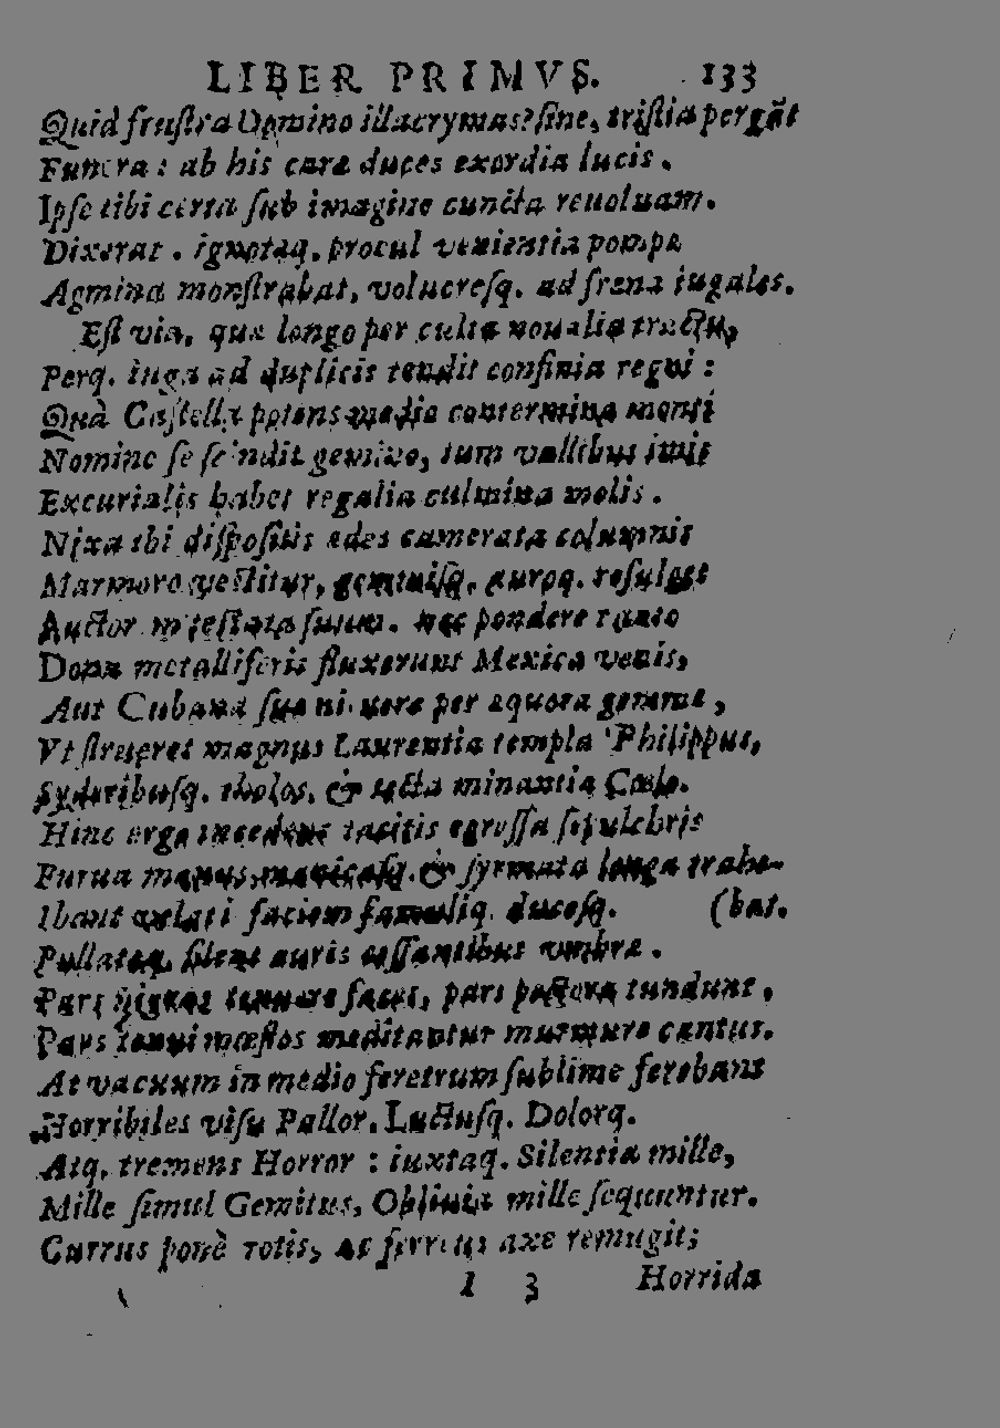 LIBER PRIMVS. 133
Quid fruſtra Domino illacrymas? ſine, triſtia pergāt
Funera: ab his care duces exordia lucis.
Ipſe tibi certa ſub imagine cuncta reuoluam.
Dixerat. ignotaq. procul venientia pompæ
Agmina monſtrabat, volucreſq. ad frena iugales.
Eſt via, quæ longo per culta noualia tractu,
Perq. iuga ad duplicis tendit confinia regni:
Quà Caſtella potens medio contermina monti
Nomine ſe ſcindit gemino, tum vallibus imis
Excurialis habet regalia culmina molis.
Nixa ibi diſpoſitis ædes camerata columnis
Marmore veſtitur, gemmiſq. auroq. refulget
Auctor ſuum. nec pondere tanto
Dona metalliferis fluxerunt Mexica venis,
Aut Cubana ſuæ niuere per æquora gemmæ,
Vt ſtrueret magnus Laurentia templa Philippus,
Syderibuſq. tholos, & tecta minantia Cœlo.
Hinc ergo incedens tacitis egreſſa ſepulchris
Furua manus, manicaſq. & ſyrmata longa trahe-
Ibant velati faciem famuliq. duceſq. (bat.
Pullatæq. ſilent auris ceſſantibus vmbræ.
Pars nigras tenuere faces, pars pectora tundunt,
Pars tenui mœſtos meditantur murmure cantus.
At vacuum in medio feretrum ſublime ferebant
Horribiles viſu Pallor, Luctuſq. Dolorq.
Atq. tremens Horror: iuxtaq. Silentia mille,
Mille ſimul Gemitus, Obliuia mille ſequuntur.
Currus ponè rotis, ac ferreus axe remugit;
I 3 Horrida